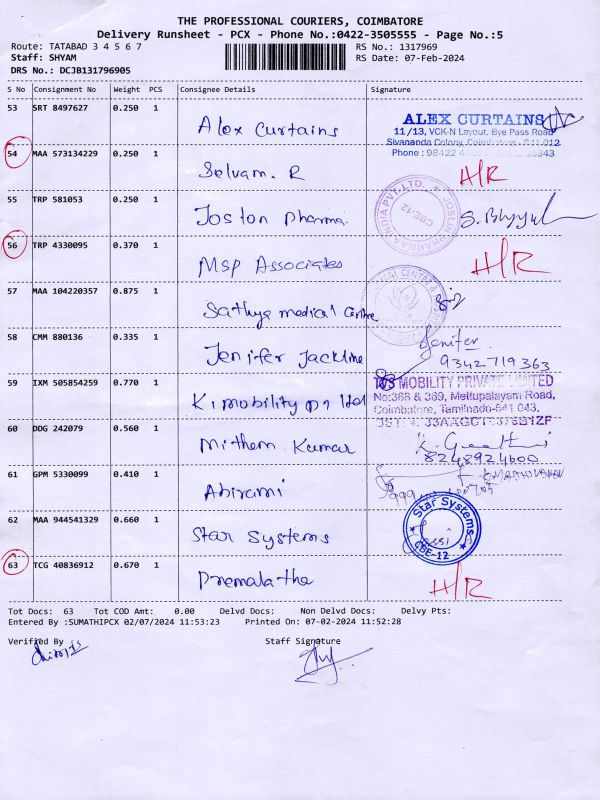 THE PROFESSIONAL COURIERS, COIMBATORE
Delivery Runsheet - PCX - Phone No.:0422-3505555 - Page No.:5
Route: TATABAD 3 4 5 6 7
RS No.: 1317969
Staff: SHYAM
RS Date: 07-Feb-2024
DRS No.: DCJB131796905
S No Consignment No Weight PCS Consignee Details Signature
53 SRT 8497627 0.250 1 Alex Curtains
ALEX CURTAINS
11/13, VCK-N Layout, Bye Pass Road
Sivananda Colony, Coimbatore - 641 012
Phone : 98422
54 MAA 573134229 0.250 1 Selvam. R H/R
55 TRP 581053 0.250 1 Joston pharma.
CBE-12
56 TRP 4330095 0.370 1 MSP Associates H/R
57 MAA 104220357 0.875 1 Sathya medical Centre
58 CMM 880136 0.335 1 Jenifer Jackline
Jenifer
9342719363
59 IXM 505854259 0.770 1 Ki mobility pn ltd
MOBILITY PRIVATE LIMITED
No:368 & 369, Mettupalayam Road,
Coimbatore, Tamilnadu-641 043.
60 DDG 242079 0.560 1 Mithem Kumar
8248924600
61 GPM 5330099 0.410 1 Abirami
62 MAA 944541329 0.660 1 Star Systems
Star Systems
CBE-12
63 TCG 40836912 0.670 1 Premalatha H/R
Tot Docs: 63 Tot COD Amt: 0.00 Delvd Docs: Non Delvd Docs: Delvy Pts:
Entered By :SUMATHIPCX 02/07/2024 11:53:23 Printed On: 07-02-2024 11:52:28
Verified By Staff Signature